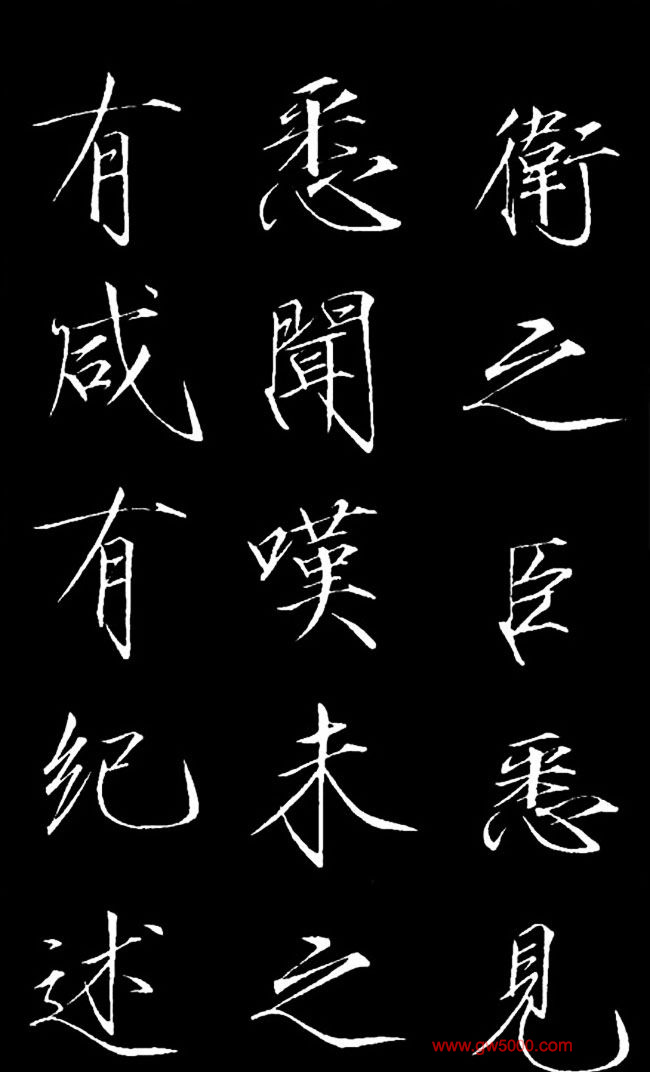 衛之臣悉見
悉聞嘆未之
有咸有纪述
www.gw5000.com